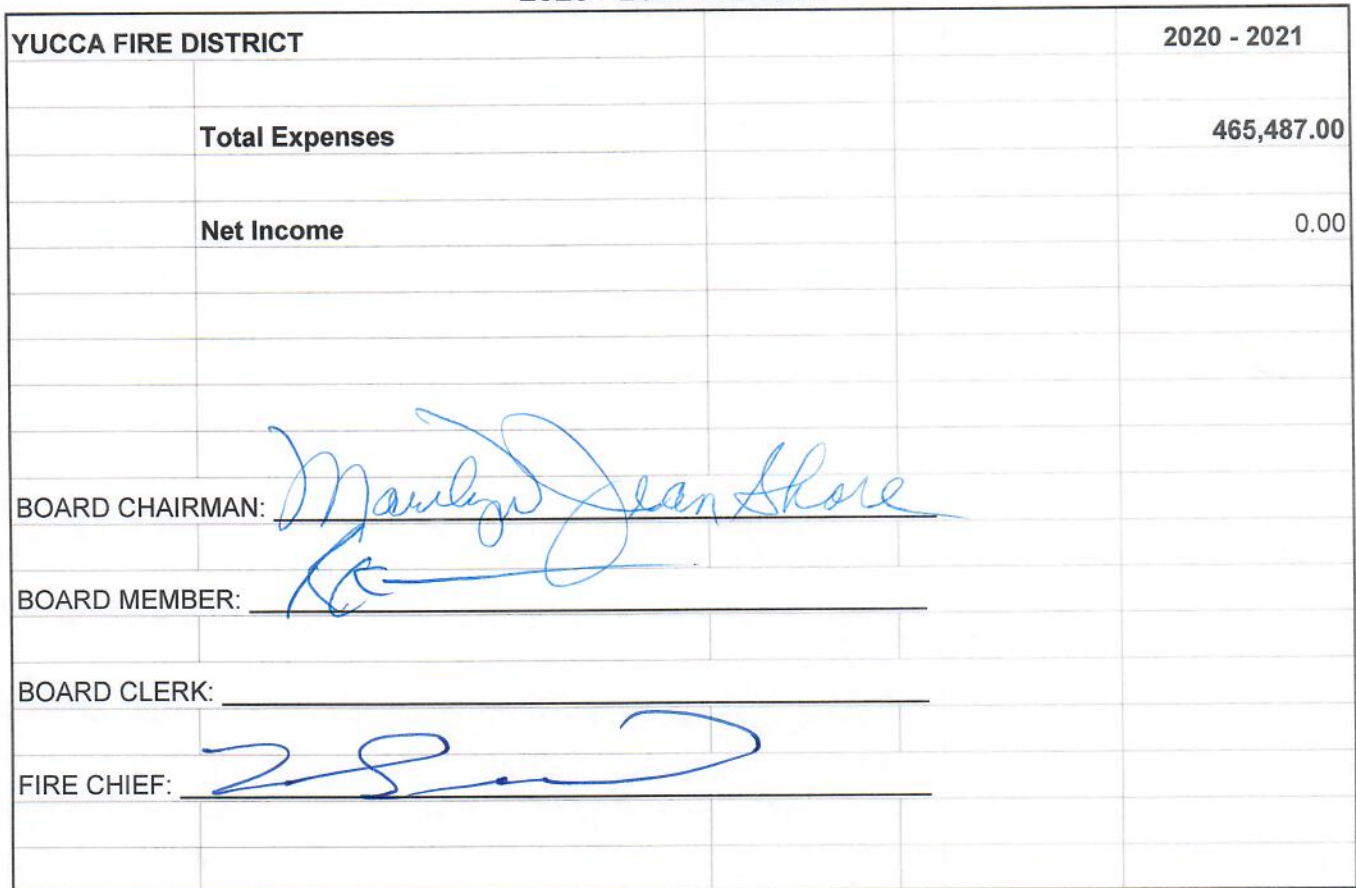 YUCCA FIRE DISTRICT 2020 - 2021
Total Expenses 465,487.00
Net Income 0.00
BOARD CHAIRMAN: Marilyn Jean Shore
BOARD MEMBER:
BOARD CLERK:
FIRE CHIEF: